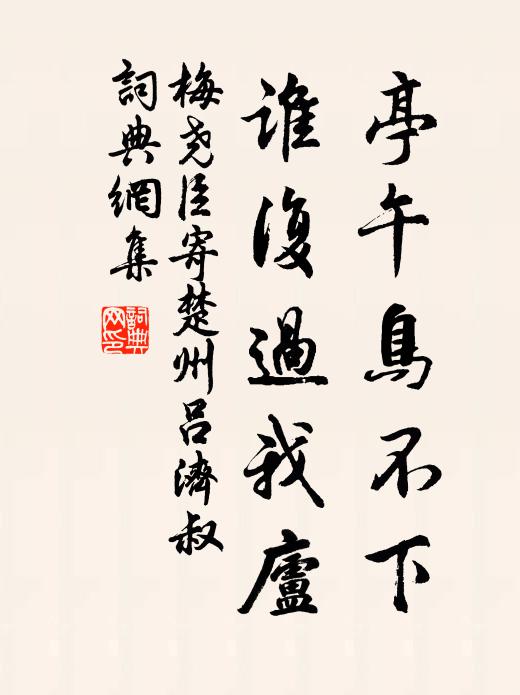 亭午鳥不下
誰復過我廬
梅尧臣寄楚州吕濟叔
詞典網集
詞典网印